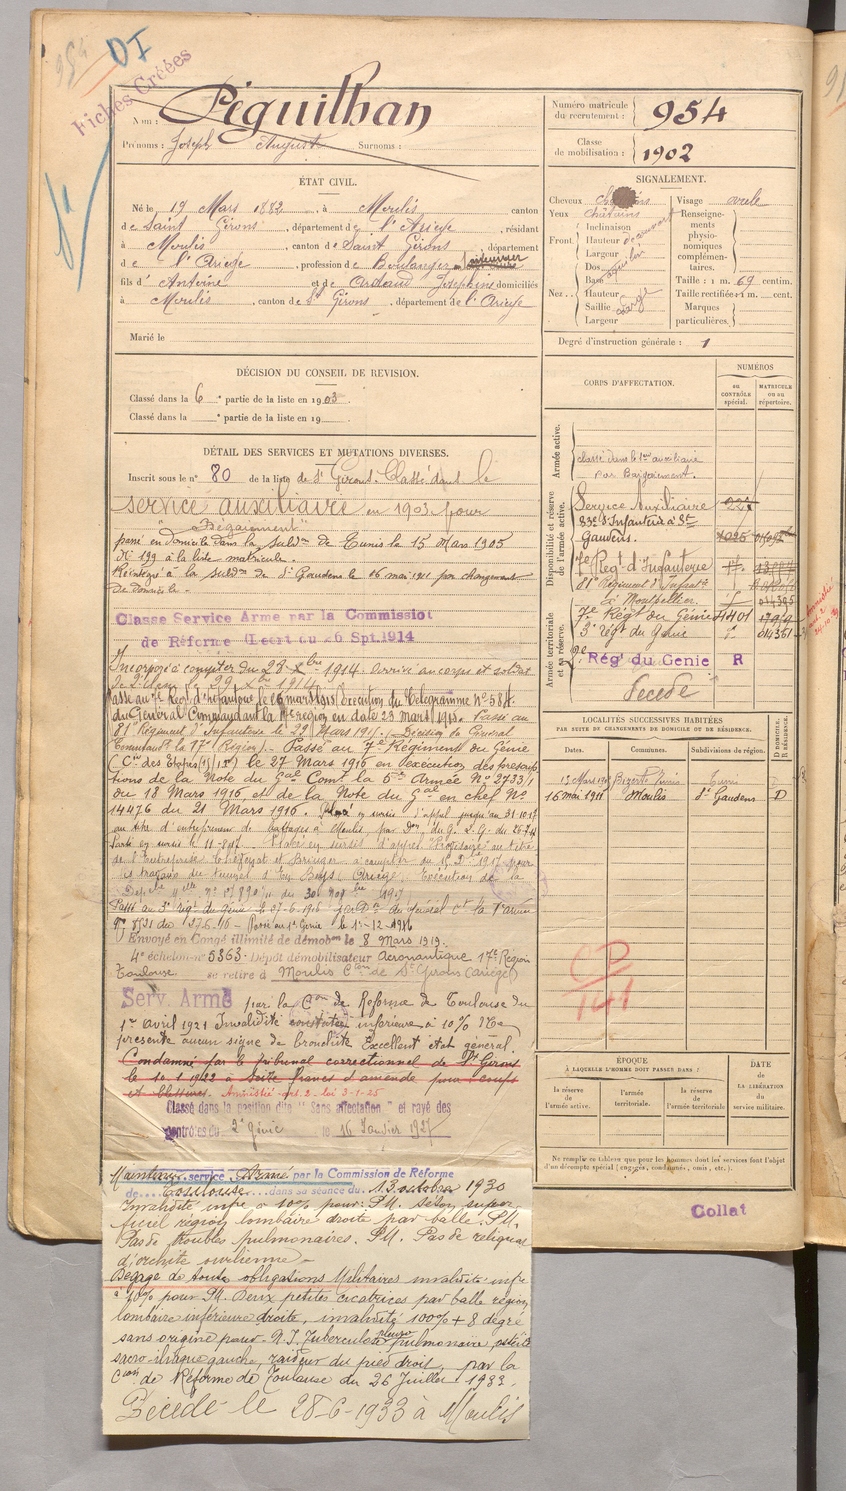 954
DI
Fiches Créées
Nom : Péguilhan
Prénoms : Joseph August Surnoms :
Numéro matricule du recrutement : 954
Classe de mobilisation : 1902
ÉTAT CIVIL.
Né le 19 Mars 1882, à Moulis canton
de Saint Girons, département de l'Ariège, résidant
à Moulis, canton de Saint Girons, département
de l'Ariège, profession de Boulanger
fils d' Antoine et de Ardaud Joséphine domiciliés
à Moulis, canton de St Girons, département de l'Ariège
Marié le
SIGNALEMENT.
Cheveux châtains Visage ovale
Yeux châtains
Front : Inclinaison
Hauteur découvert
Largeur
Nez : Dos
Base
Hauteur
Saillie large
Largeur
Renseignements physionomiques complémentaires.
Taille : 1 m. 69 centim.
Taille rectifiée : 1 m. cent.
Marques particulières.
Degré d'instruction générale : 1
DÉCISION DU CONSEIL DE REVISION.
Classé dans la 6e partie de la liste en 1903
Classé dans la e partie de la liste en 19
DÉTAIL DES SERVICES ET MUTATIONS DIVERSES.
Inscrit sous le n° 80 de la liste de St Girons. Classé dans le
service auxiliaire en 1903 pour
"Bégaiement"
passé en domicile dans la subdon de Tunis le 15 Mars 1905
N° 199 à la liste matricule.
Réintégré à la subdon de St Gaudens le 16 mai 1911 par changement
de domicile.
Classé Service Armé par la Commission
de Réforme (Decret du 26 Spt.1914
Incorporé à compter du 28 Xbre 1914. Arrivé au corps et soldat
de 2e classe le 29 Xbre 1914
Passé au 7e Régt d'infanterie le 26 mars 1915 (Exécution du Télégramme N° 584
du Général Commandant la 17e région en date 23 mars 1915. Passé au
81e Régiment d'Infanterie le 29 Mars 1915. (Décision du Général
Commandt la 17e Région). Passé au 7e Régiment du Génie
le 27 Mars 1916 en exécution des prescriptions
de la Note du Gal Comt la 5e Armée N° 2733/1
du 18 Mars 1916, et de la Note du Gal en chef N°
14476 du 21 Mars 1916. Placé en sursis d'appel jusqu'au 31-10-17
au titre d'entrepreneur de battages à Moulis, par Don du G. Q. G. du
Parti en sursis le 11-8-17. Placé en sursis d'appel
de l'Entreprise et Bringer à compter du 1917 pour
travaux du tunnel (Ariège). Exécution de la
1917
Passé au 3e régt du génie le 27-6-1916 du général Ct la 1e armée
du 27-6-16 - Passé au 1er Génie le 1-12-1916
Envoyé en Congé illimité de démobon le 8 Mars 1919.
4e échelon n° 5363. Dépôt démobilisateur Aéronautique 17e Région
Toulouse se retire à Moulis Con de St Girons (Ariège)
Serv. Armé par la Con de Réforme de Toulouse du
1er avril 1921 Invalidité constatée inférieure à 10% Ne
présente aucun signe de bronchite Excellent état général.
Condamné par le tribunal correctionnel de St Girons
le 10-1-1922 à Seize francs d'amende pour coups
et blessures. Amnistié art. 2 - loi 3-1-25
Classé dans la position dite "Sans affectation" et rayé des
contrôles du 2e génie le 16 Janvier 1927
Maintenu service Armé par la Commission de Réforme
de Toulouse dans sa séance du 13 octobre 1930
Invalidité infre à 10% pour : P.M. Séton superficiel
région lombaire droite par balle. P.M.
Pas de troubles pulmonaires. P.M. Pas de reliquat
d'orchite ourlienne -
Dégagé de toutes obligations Militaires invalidité infre
à 10% pour P.M. Deux petites cicatrices par balle région
lombaire inférieure droite, invalidité 100% + 8 degré
sans origine pour N.I. Tuberculose pleuro pulmonaire ostéite
sacro iliaque gauche, raideur du pied droit, par la
Cion de Réforme de Toulouse du 26 Juillet 1933.
Décédé le 28-6-1933 à Moulis
CORPS D'AFFECTATION.
NUMÉROS
au CONTRÔLE spécial.
MATRICULE ou au répertoire.
Armée active.
classé dans le service auxiliaire
par Bégaiement.
Disponibilité et réserve de l'armée active.
Service Auxiliaire
83e d'Infanterie à St
Gaudens
7e Régt d'Infanterie
81e Régiment d'Infantie
à Montpellier
Armée territoriale et sa réserve.
7e Régt du Génie 4401
3e régt du Génie
2e Rég' du Genie R
Décédé
LOCALITÉS SUCCESSIVES HABITÉES
PAR SUITE DE CHANGEMENTS DE DOMICILE OU DE RÉSIDENCE.
Dates. Communes. Subdivisions de région. D DOMICILE. R RÉSIDENCE.
15 Mars 1905 Bizerte Tunis Tunis
16 mai 1911 Moulis St Gaudens D
CP
141
ÉPOQUE
À LAQUELLE L'HOMME DOIT PASSER DANS :
la réserve de l'armée active.
l'armée territoriale.
la réserve de l'armée territoriale
DATE de LA LIBÉRATION du service militaire.
Ne remplir ce tableau que pour les hommes dont les services font l'objet
d'un décompte spécial (engagés, condamnés, omis, etc.).
Collat